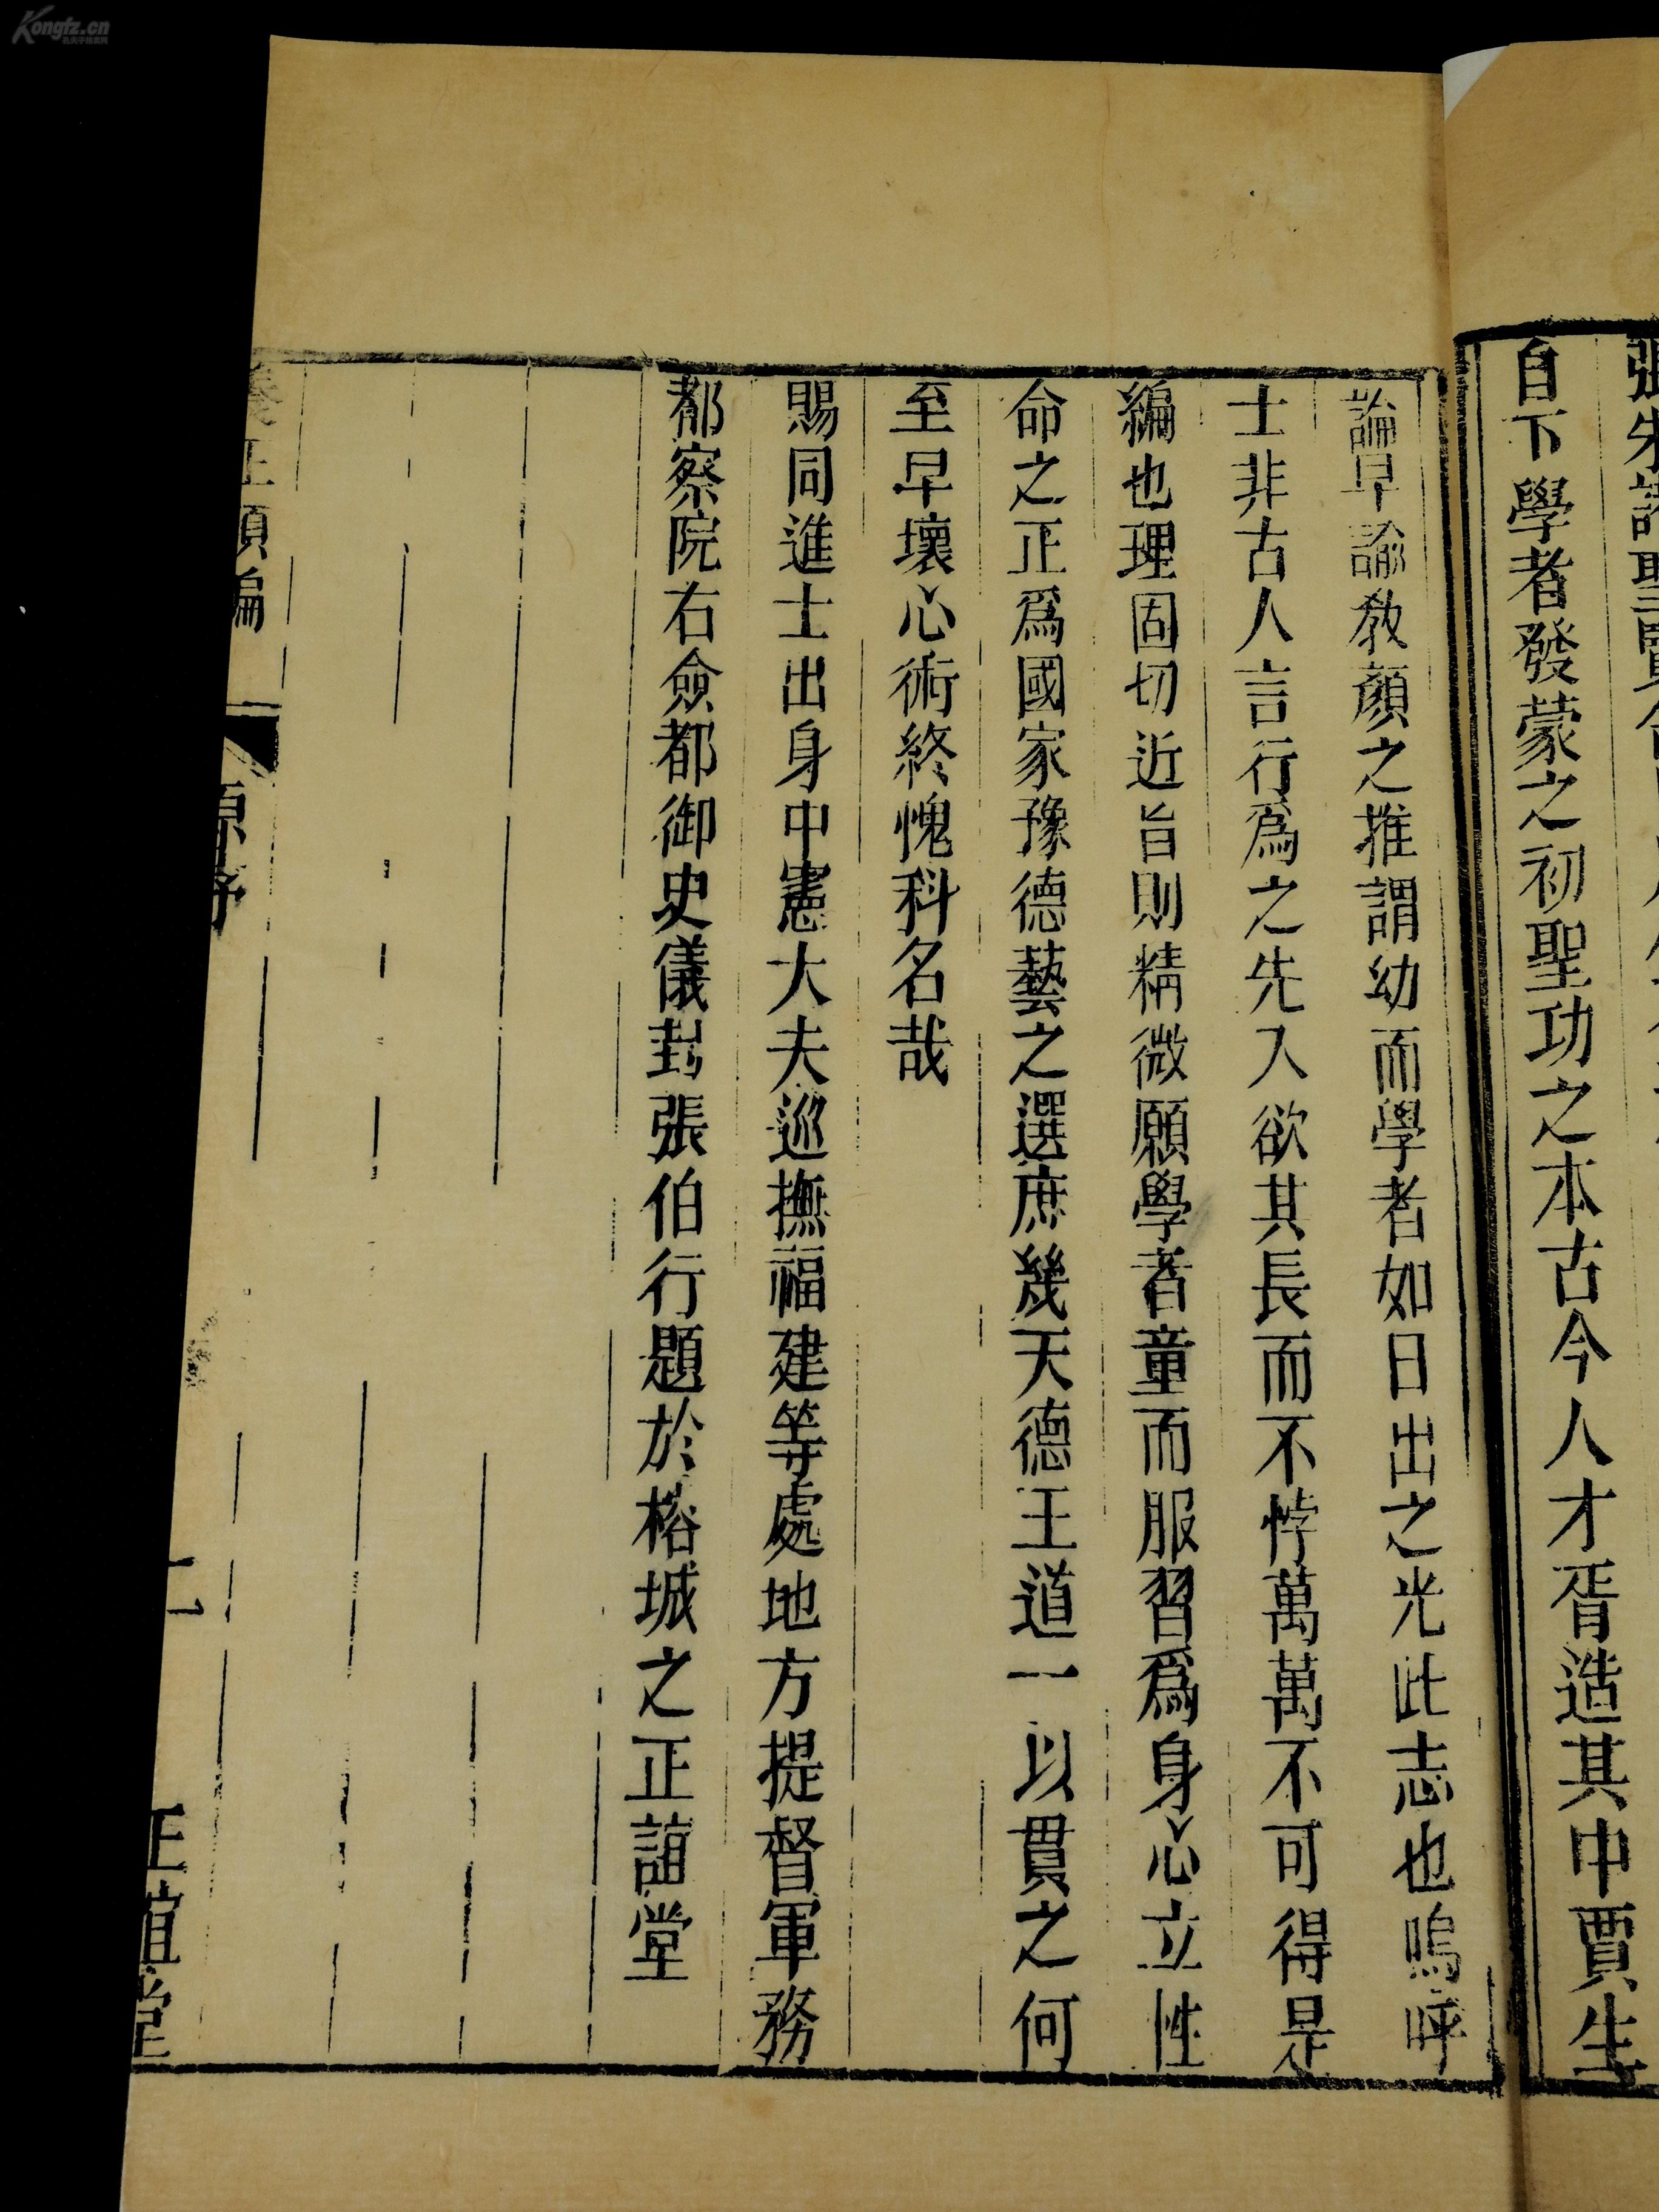 自下學者發蒙之初聖功之本古今人才胥造其中賈生
論早諭教顏之推謂幼而學者如日出之光此志也嗚呼
士非古人言行為之先入欲其長而不悖萬萬不可得是
編也理固切近旨則精微願學者童而服習爲身心立性
命之正爲國家豫德藝之選庶幾天德王道一以貫之何
至早壞心術終愧科名哉
賜同進士出身中憲大夫巡撫福建等處地方提督軍務
都察院右僉都御史儀封張伯行題於榕城之正誼堂
養正類編
原序
二
正誼堂
Kongfz.cn